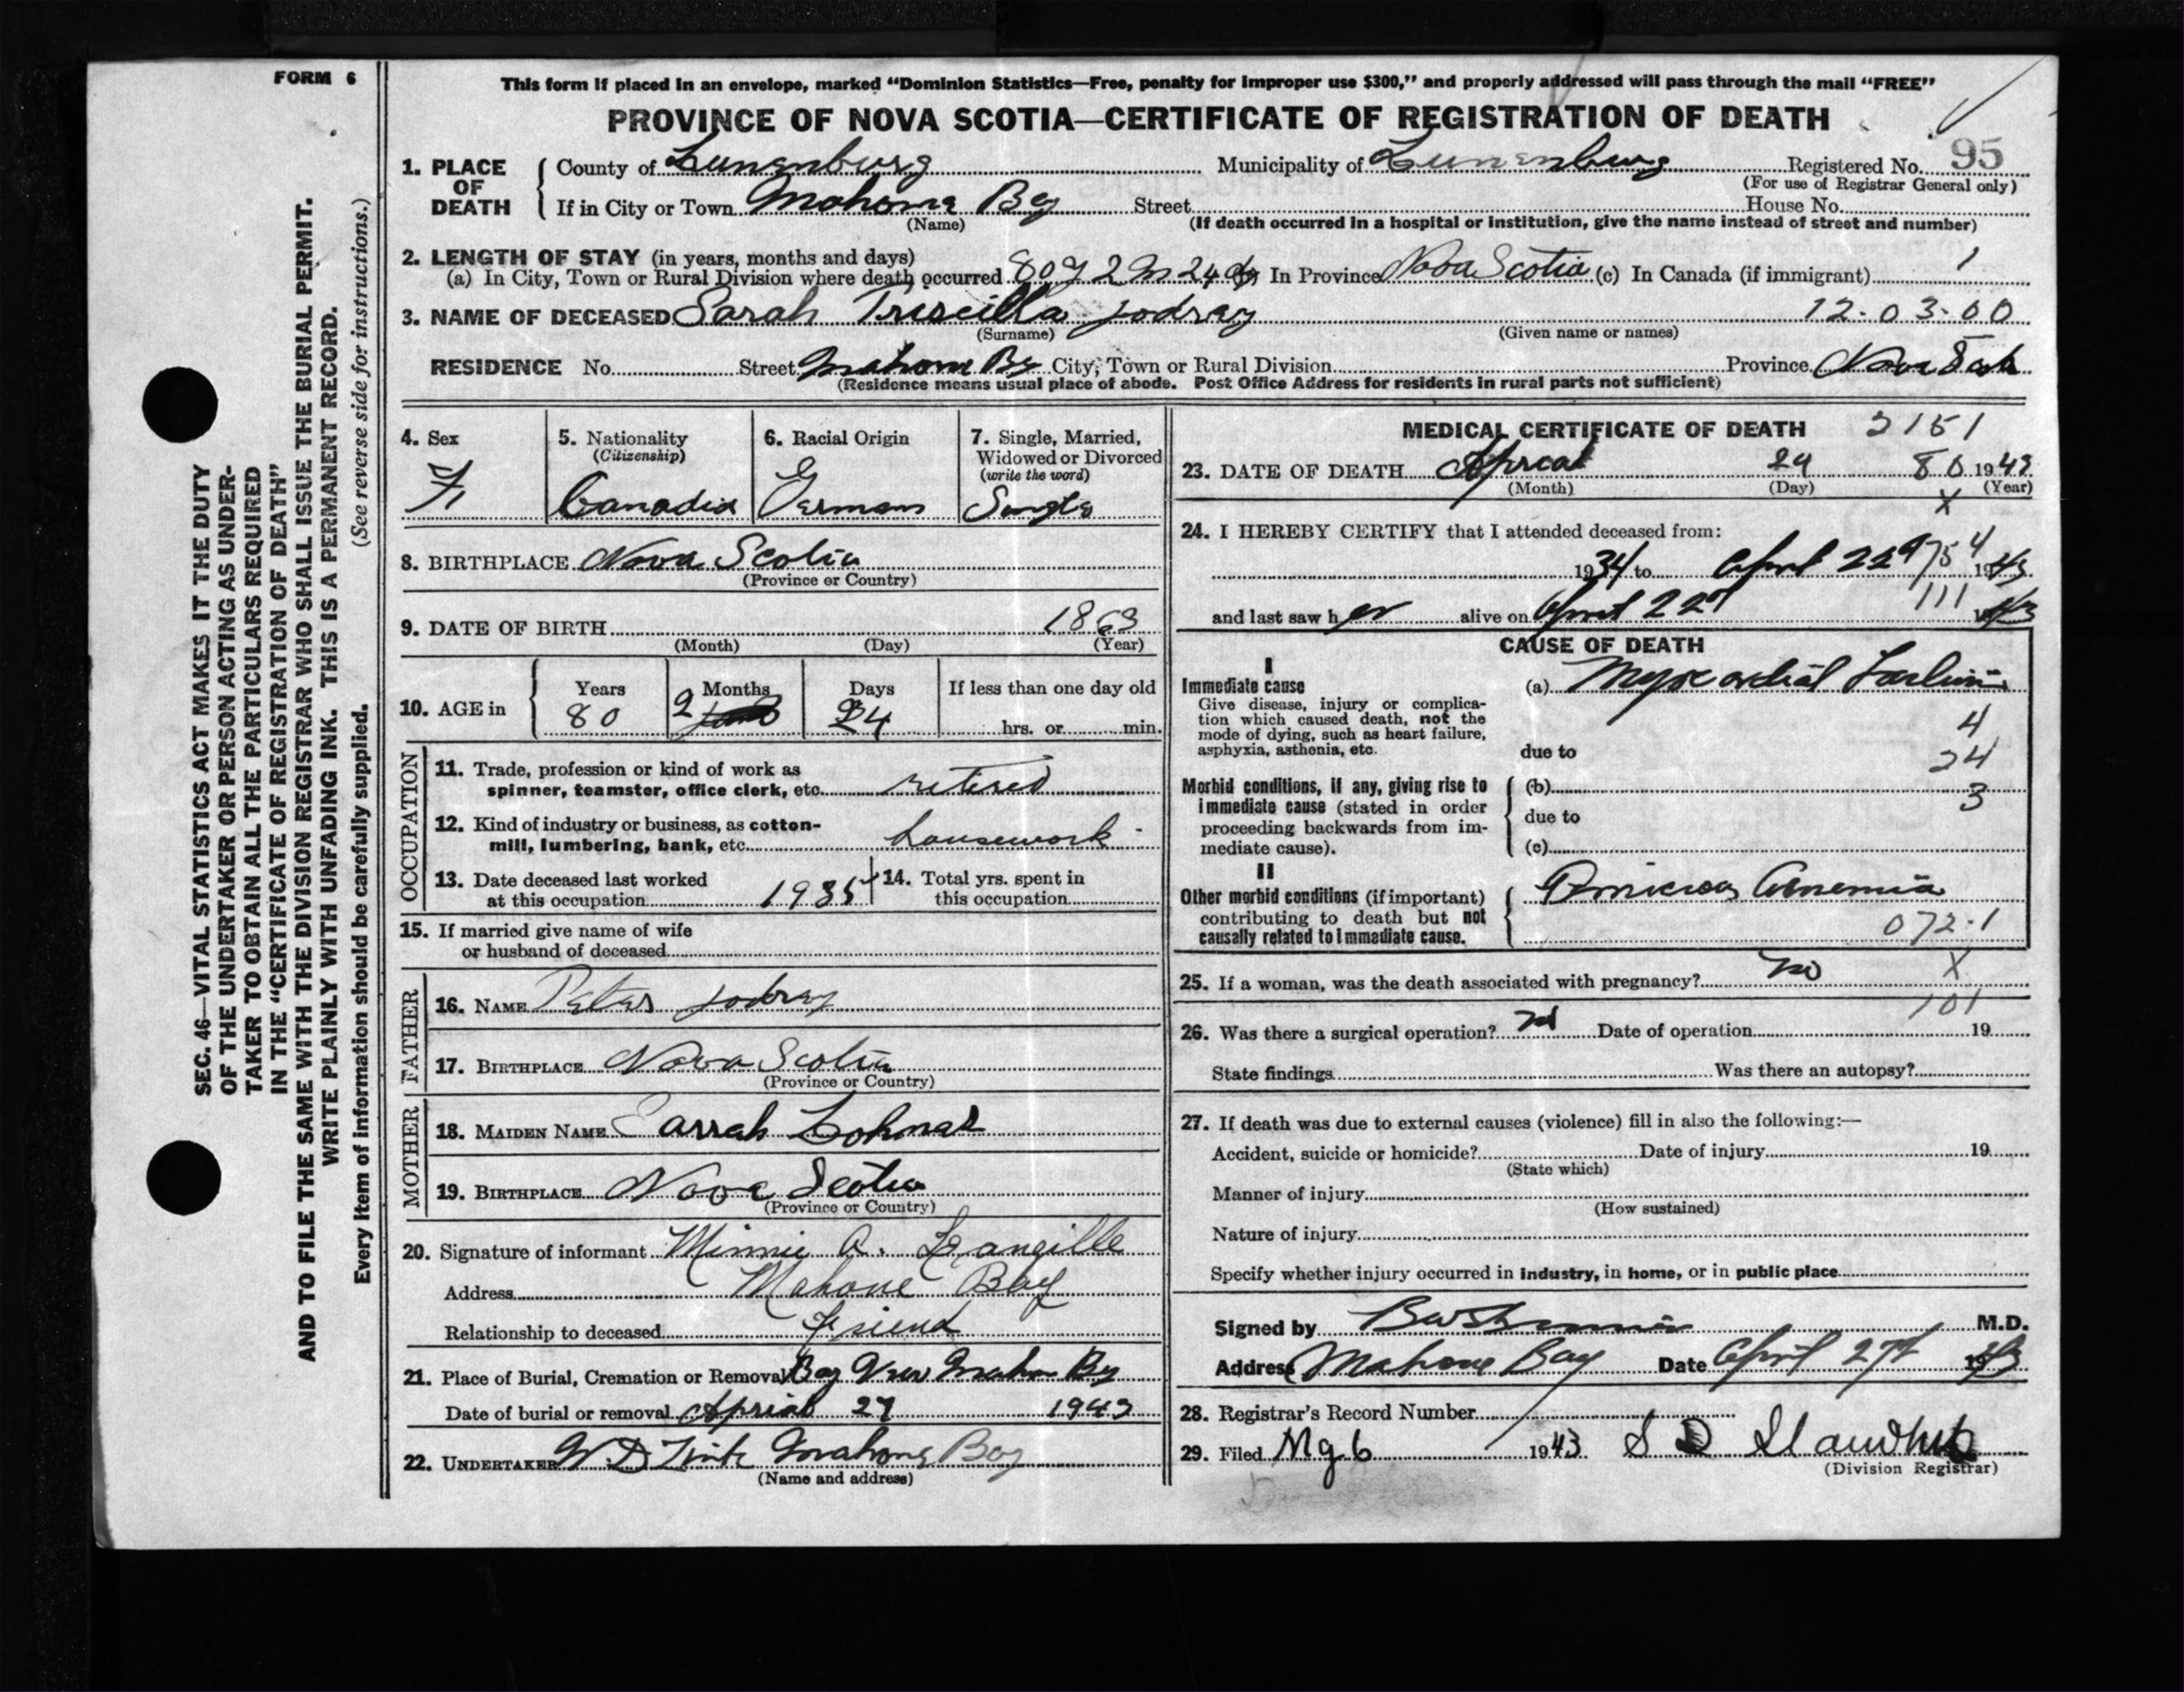 FORM 6
This form if placed in an envelope, marked "Dominion Statistics—Free, penalty for improper use $300," and properly addressed will pass through the mail "FREE"
PROVINCE OF NOVA SCOTIA—CERTIFICATE OF REGISTRATION OF DEATH
1. PLACE OF DEATH County of Lunenburg Municipality of Lunenburg Registered No. 95
(For use of Registrar General only)
If in City or Town Mahone By Street House No.
(Name) (If death occurred in a hospital or institution, give the name instead of street and number)
2. LENGTH OF STAY (in years, months and days)
(a) In City, Town or Rural Division where death occurred 80 y 2 m 24 In Province Nova Scotia (c) In Canada (if immigrant) 1
3. NAME OF DECEASED Sarah Priscilla Jodrey 12.03.00
(Surname) (Given name or names)
RESIDENCE No. Street Mahone By City, Town or Rural Division Province Nova
(Residence means usual place of abode. Post Office Address for residents in rural parts not sufficient)
4. Sex F
5. Nationality (Citizenship) Canadia
6. Racial Origin German
7. Single, Married, Widowed or Divorced (write the word) Single
8. BIRTHPLACE Nova Scotia
(Province or Country)
9. DATE OF BIRTH 1863
(Month) (Day) (Year)
10. AGE in Years 80 Months 2 Days 24 If less than one day old
hrs. or min.
OCCUPATION
11. Trade, profession or kind of work as
spinner, teamster, office clerk, etc. retired
12. Kind of industry or business, as cotton-
mill, lumbering, bank, etc. housework
13. Date deceased last worked
at this occupation 1935
14. Total yrs. spent in
this occupation
15. If married give name of wife
or husband of deceased
FATHER
16. NAME Peter Jodrey
17. BIRTHPLACE Nova Scotia
(Province or Country)
MOTHER
18. MAIDEN NAME Sarrah
19. BIRTHPLACE Nova Scotia
(Province or Country)
20. Signature of informant Minnie A. Langille
Address Mahone Bay
Relationship to deceased Friend
21. Place of Burial, Cremation or Removal Bay View Mahon By
Date of burial or removal Aprial 27 1943
22. UNDERTAKER W D Zink Mahone Bay
(Name and address)
MEDICAL CERTIFICATE OF DEATH 2151
23. DATE OF DEATH Aprial 24 80 1943
(Month) (Day) (Year)
X
24. I HEREBY CERTIFY that I attended deceased from:
1934 to April 22 1943
and last saw her alive on April 22 111 1943
CAUSE OF DEATH
I
Immediate cause
Give disease, injury or complica-
tion which caused death, not the
mode of dying, such as heart failure,
asphyxia, asthenia, etc.
(a) Myocardial Failure
4
due to 24
Morbid conditions, if any, giving rise to
immediate cause (stated in order
proceeding backwards from im-
mediate cause).
(b) 3
due to
(c)
II
Other morbid conditions (if important)
contributing to death but not
causally related to immediate cause.
Pernicious Anemia
072.1
25. If a woman, was the death associated with pregnancy? no X
101
26. Was there a surgical operation? no Date of operation 19
State findings Was there an autopsy?
27. If death was due to external causes (violence) fill in also the following:—
Accident, suicide or homicide? Date of injury 19
(State which)
Manner of injury
(How sustained)
Nature of injury
Specify whether injury occurred in industry, in home, or in public place
Signed by M.D.
Address Mahone Bay Date April 27 1943
28. Registrar's Record Number
29. Filed 6 1943 S D
(Division Registrar)
SEC. 46—VITAL STATISTICS ACT MAKES IT THE DUTY
OF THE UNDERTAKER OR PERSON ACTING AS UNDER-
TAKER TO OBTAIN ALL THE PARTICULARS REQUIRED
IN THE "CERTIFICATE OF REGISTRATION OF DEATH"
AND TO FILE THE SAME WITH THE DIVISION REGISTRAR WHO SHALL ISSUE THE BURIAL PERMIT.
WRITE PLAINLY WITH UNFADING INK. THIS IS A PERMANENT RECORD.
Every item of information should be carefully supplied. (See reverse side for instructions.)